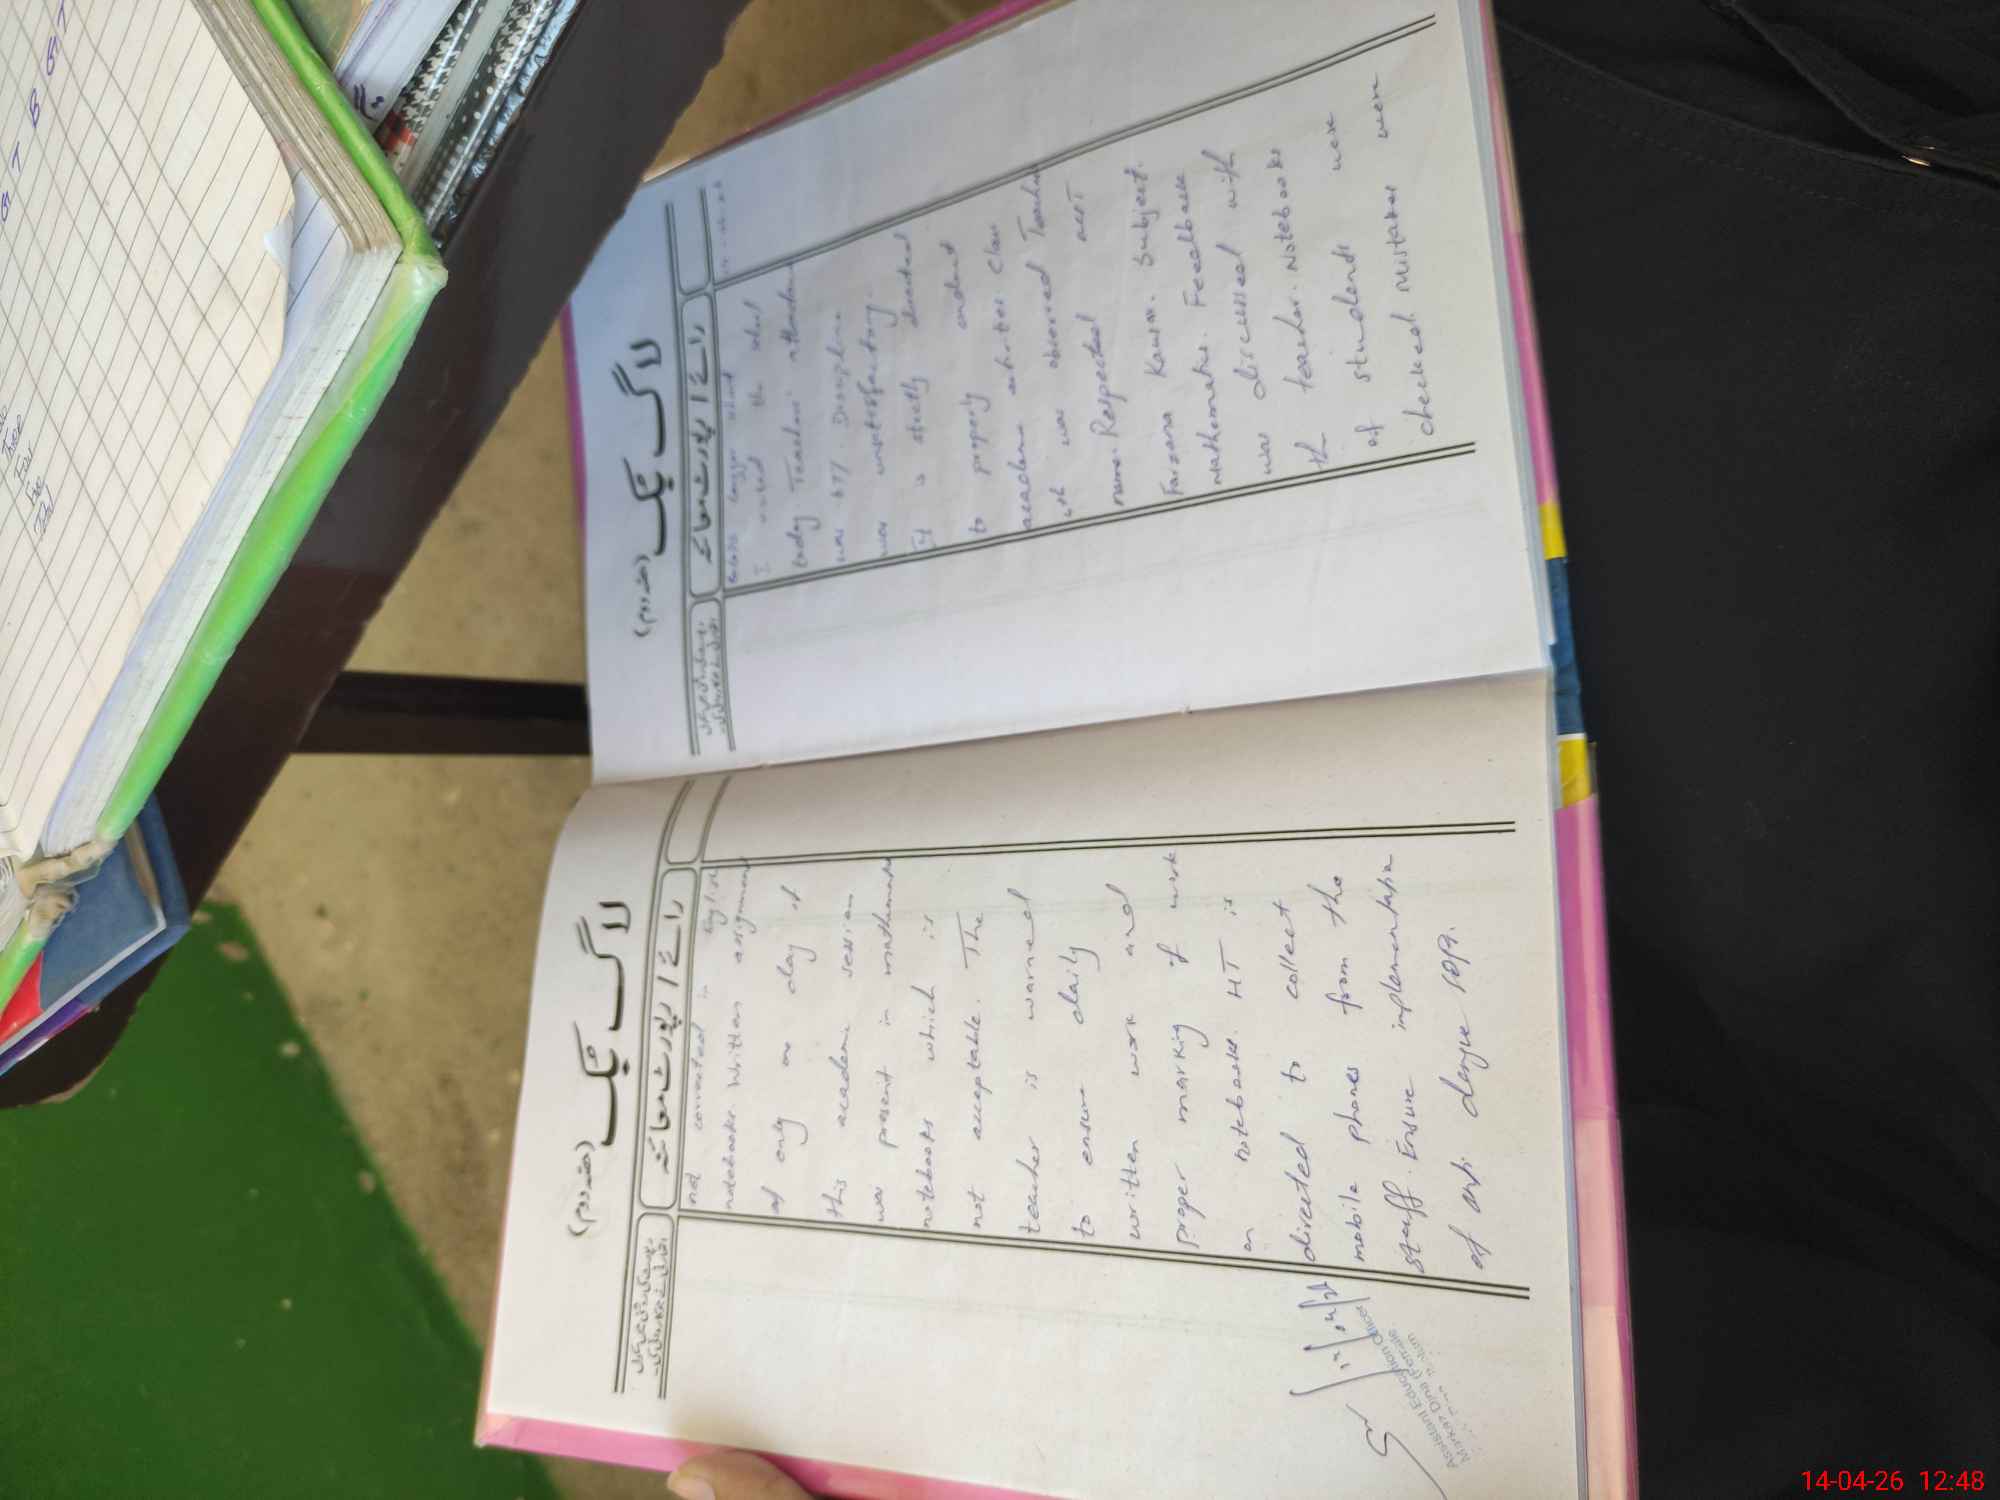 لاگ بک
(حصہ دوم)
رائے / رپورٹ معائنہ
I visited the school
today Teachers attendance
was 67%. Discipline
was unsatisfactory.
is strictly directed
to properly conduct
academic activities. Class
was observed Teacher
name. Respected
Farzana Kausar. Subject.
Mathematics. Feedback
was discussed with
the teacher. Notebooks
of students were
checked. Mistakes were
لاگ بک
(حصہ دوم)
رائے / رپورٹ معائنہ
not corrected in English
notebooks. Written assignment
of only one day of
this academic session
was present in mathematics
notebooks which is
not acceptable. The
teacher is warned
to ensure daily
written work and
proper marking of work
on notebooks. HT is
directed to collect
mobile phones from the
staff. Ensure implementation
of anti dengue SOPs.
Assistant Education Officer
Markaz Dina (Female)
14-04-26 12:48